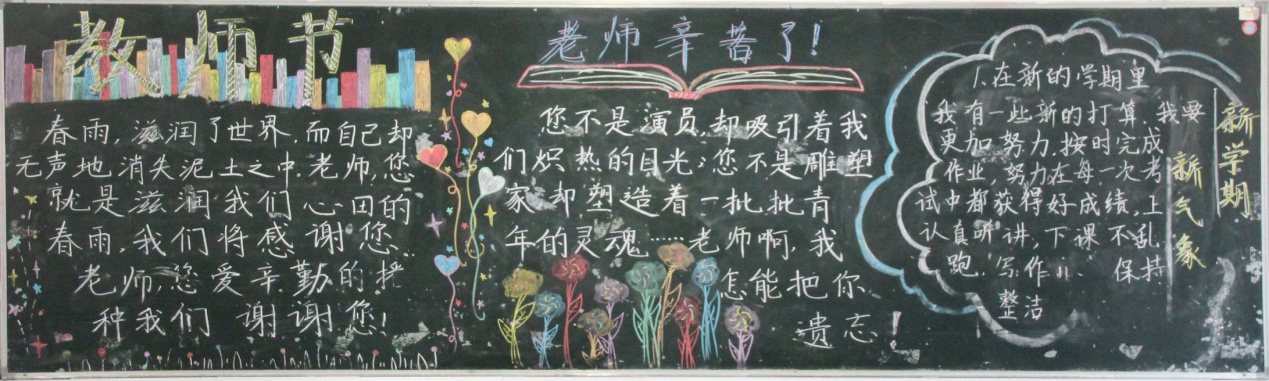 教师节
春雨,滋润了世界,而自己却
无声地消失泥土之中.老师,您
就是滋润我们心田的
春雨,我们将感谢您.
老师,您爱辛勤的播
种我们 谢谢您!
老师辛苦了!
您不是演员,却吸引着我
们炽热的目光;您不是雕塑
家,却塑造着一批批青
年的灵魂……老师啊,我
怎能把你
遗忘!
1.在新的学期里
我有一些新的打算.我要
更加努力,按时完成
作业,努力在每一次考
试中都获得好成绩,上
认真听讲,下课不乱
跑.写作业 保持
整洁
新学期
新气象